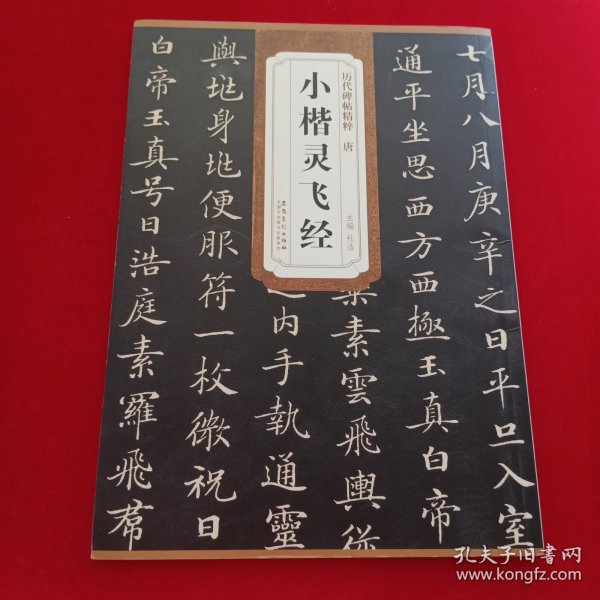 历代碑帖精粹 唐
小楷灵飞经
主编 杜浩
七月八月庚辛之日平旦入室
通平坐思西方西極玉真白帝
素雲飛輿從
之内手執通靈
與地身地便服符一枚微祝日
白帝玉真号日浩庭素羅飛帬
孔夫子旧书网
www.kongfz.com